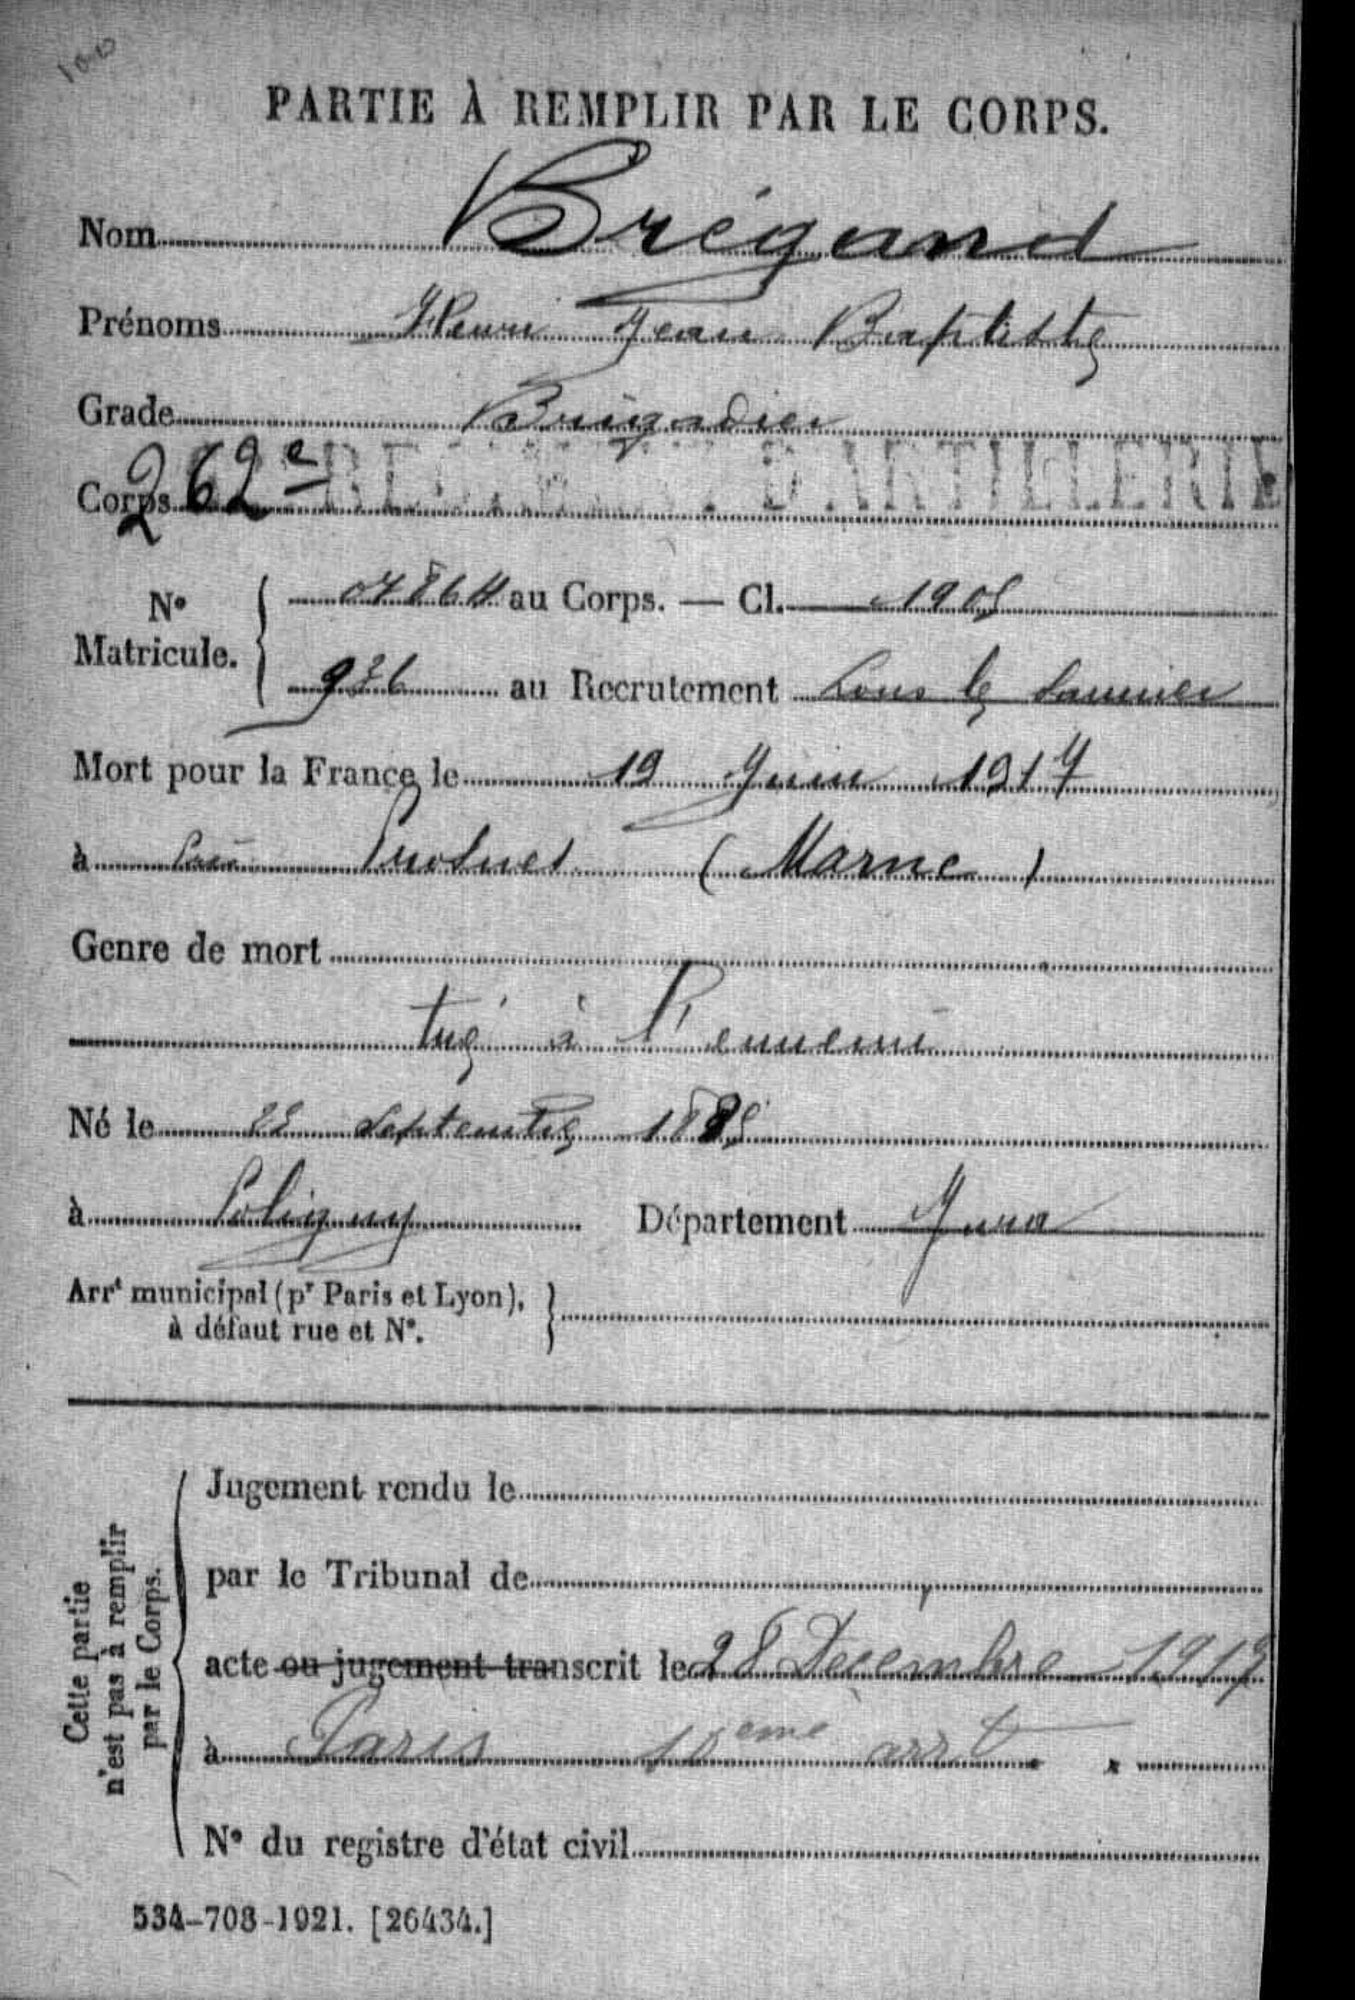 100
PARTIE À REMPLIR PAR LE CORPS.
Nom Brégand
Prénoms Henri Jean Baptiste
Grade Brigadier
Corps 262e RÉGIMENT D'ARTILLERIE
No Matricule. { 07864 au Corps. — Cl. 1905
936 au Recrutement Lons le Saunier
Mort pour la France le 19 Juin 1917
à Prosnes (Marne)
Genre de mort
tué à l'ennemi
Né le Septembre 1885
à Poligny Département Jura
Arrt municipal (pr Paris et Lyon), à défaut rue et No. }
Cette partie n'est pas à remplir par le Corps.
Jugement rendu le
par le Tribunal de
acte ou jugement transcrit le 28 Décembre 1917
à Paris 10eme arrt.
No du registre d'état civil
534-708-1921. [26434.]